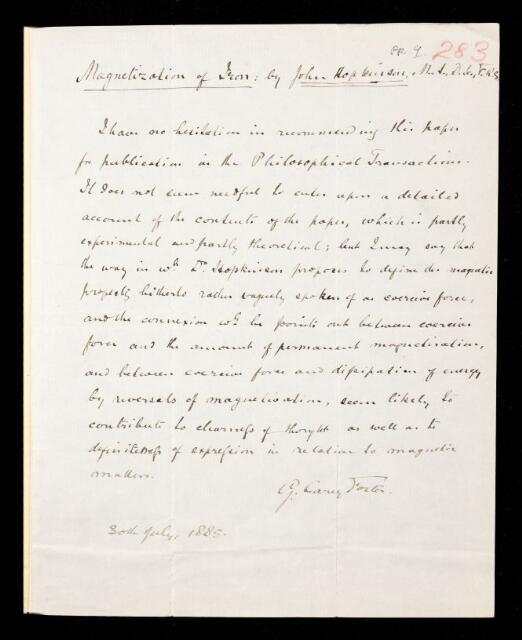 RR. 9. 283
Magnetization of Iron: by John Hopkinson, M.A., D.Sc., F.R.S.
I have no hesitation in recommending this paper
for publication in the Philosophical Transactions.
It does not seem needful to enter upon a detailed
account of the contents of the paper, which is partly
experimental and partly theoretical; but I may say that
the way in wh. Dr. Hopkinson proposes to define the magnetic
property hitherto rather vaguely spoken of as coercive force,
and the connexion wh. he points out between coercive
force and the amount of permanent magnetisation,
and between coercive force and dissipation of energy
by reversals of magnetisation, seem likely to
contribute to clearness of thought as well as to
definiteness of expression in relation to magnetic
matters.
G. Carey Foster.
30th July, 1885.